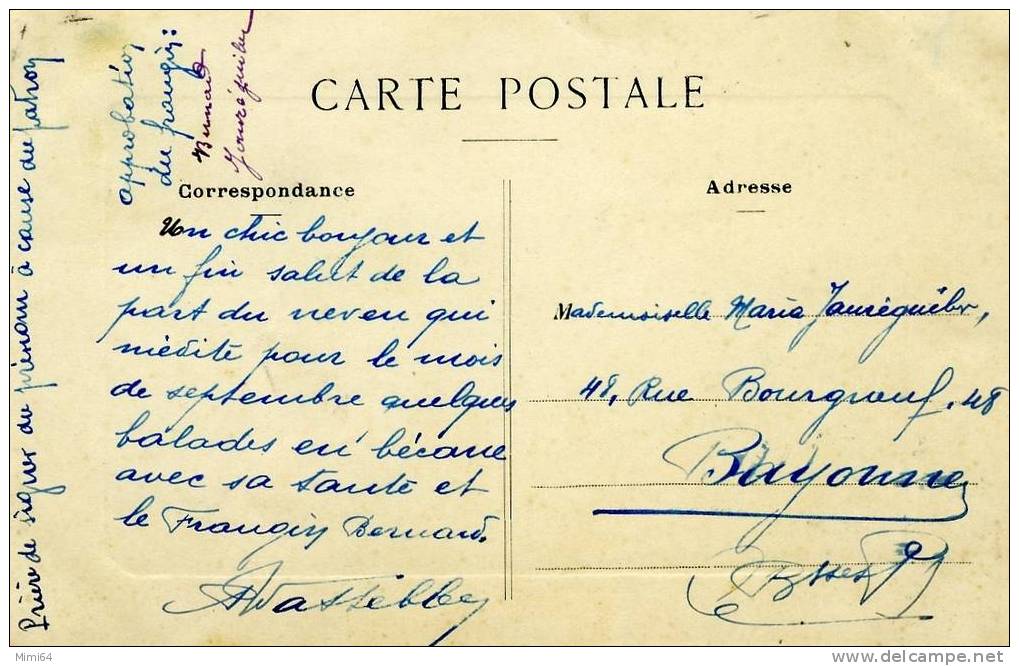 approbation
du frangin :
Bernard
Jauréguiber
CARTE POSTALE
Correspondance
Un chic bonjour et
un fin salut de la
part du neveu qui
médite pour le mois
de septembre quelques
balades en bécane
avec sa tante et
le Frangin Bernard.
Prière de signer du prénom à cause du patron
Adresse
Mademoiselle Maria Jauréguiber,
48, Rue Bourgneuf, 48
Bayonne
Bsses Py
Mimi64
delcampe.net